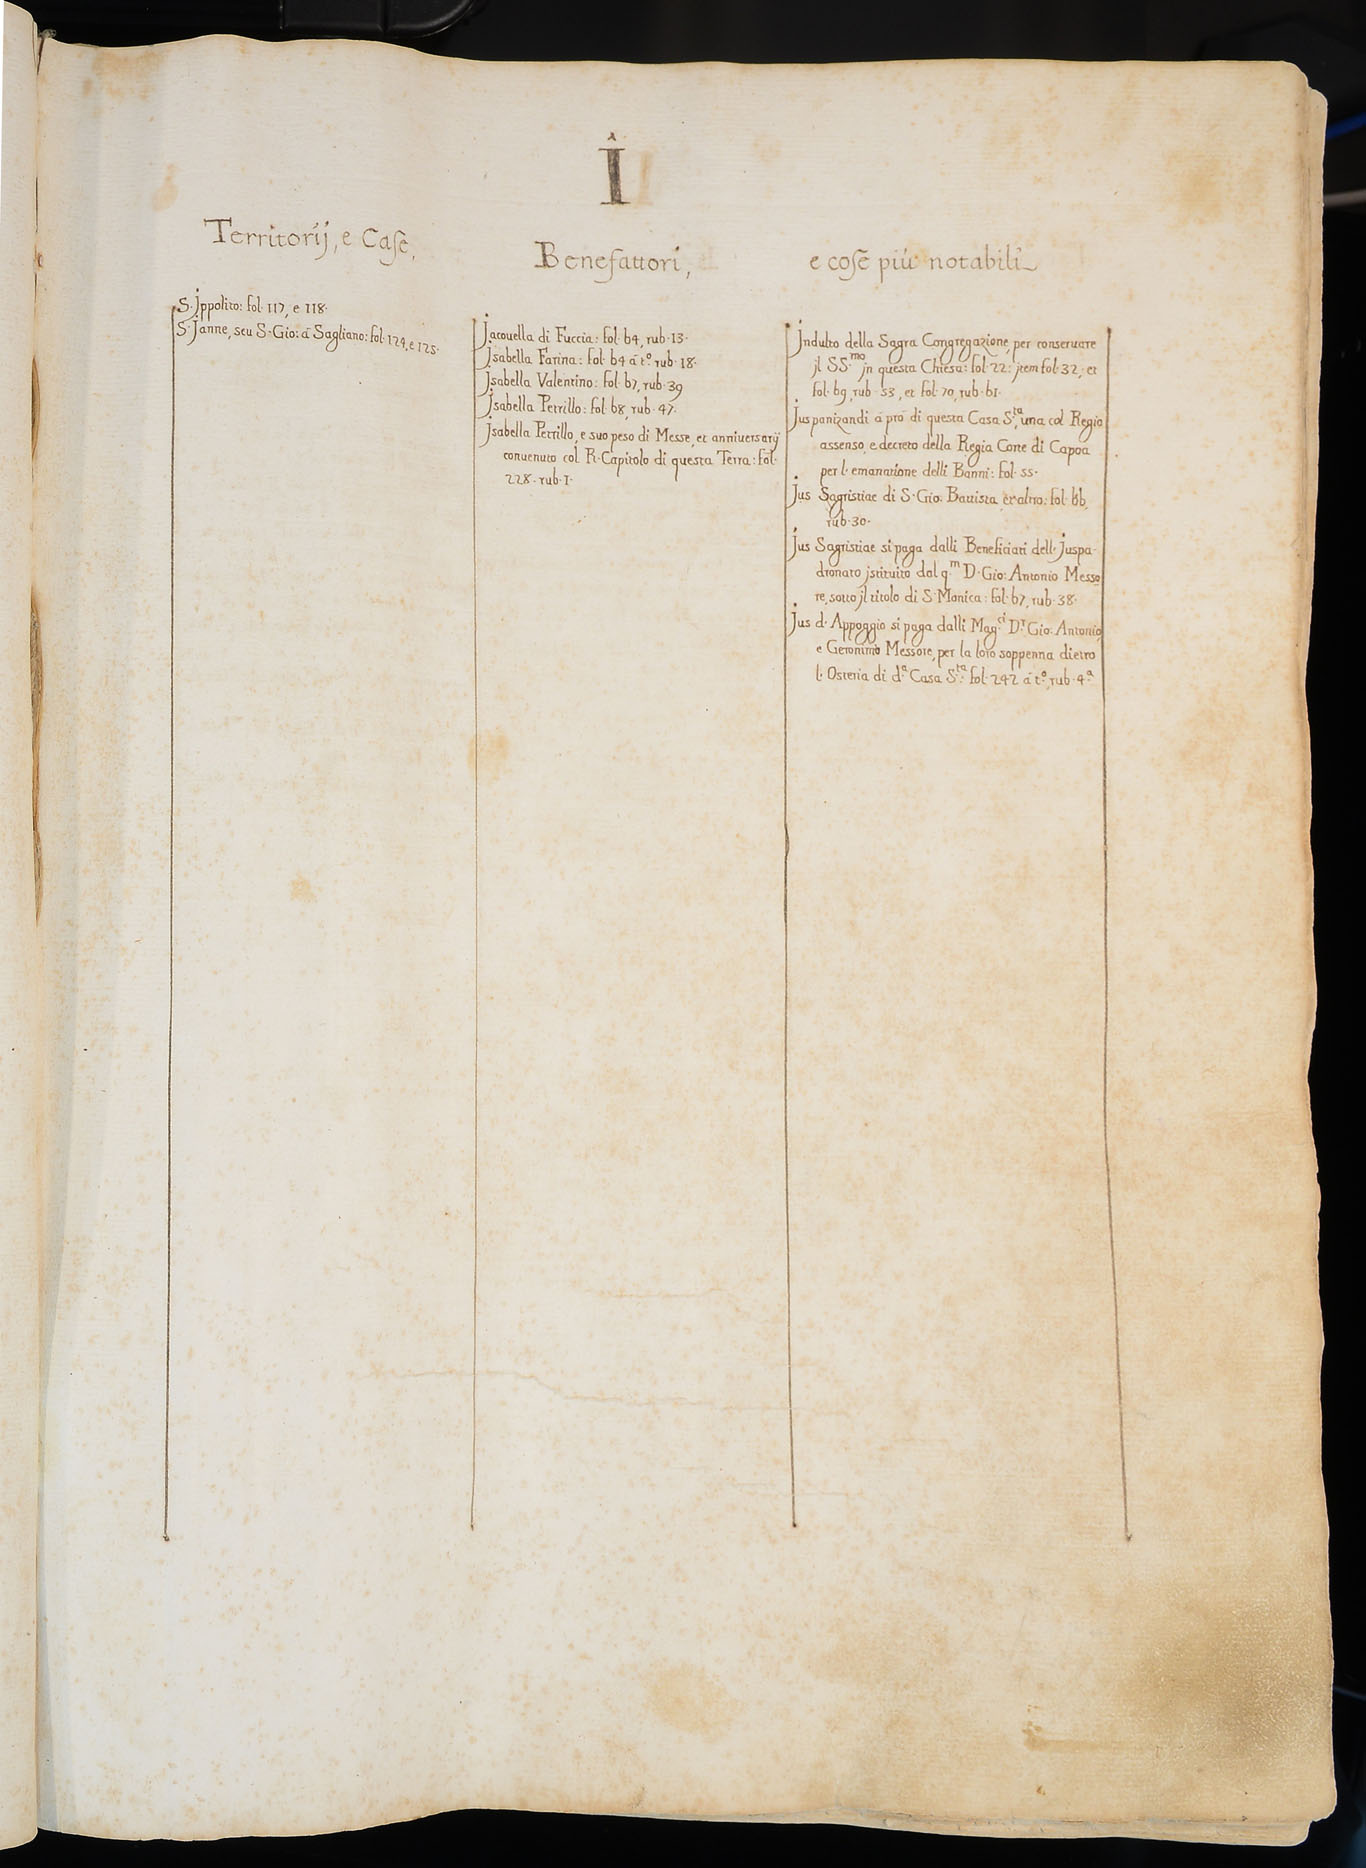 I
Territorij, e Case,
S. Jppolito: fol. 117, e 118.
S. Janne, seu S. Gio: à Sagliano: fol. 124, e 125.
Benefattori,
Jacouella di Fuccia: fol. 64, rub. 13.
Jsabella Farina: fol. 64 à t.º rub. 18.
Jsabella Valentino: fol. 67, rub. 39
Jsabella Petrillo: fol. 68, rub. 47.
Jsabella Petrillo, e suo peso di Messe, et anniuersarij
conuenuto col R. Capitolo di questa Terra: fol.
228. rub. 1.
e cose più notabili
Jndulto della Sagra Congregazione, per conseruare
jl SS.mo jn questa Chiesa: fol. 22: jtem fol. 32, et
fol. 69, rub. 53, et fol. 70, rub. 61.
Jus panizandi à prò di questa Casa S.ta, una col Regio
assenso, e decreto della Regia Corte di Capoa
per l'emanatione delli Banni: fol. 55.
Jus Sagristiae di S. Gio: Battista, et altro: fol. 66,
rub. 30.
Jus Sagristiae si paga dalli Beneficiati dell' Juspa-
dronato jstituito dal q.m D. Gio: Antonio Messo-
re, sotto jl titolo di S. Monica: fol. 67, rub. 38.
Jus d'Appoggio si paga dalli Mag.ci D.r Gio: Antonio,
e Geronimo Messore, per la loro soppenna dietro
l'Osteria di d.a Casa S.ta: fol. 242 à t.º, rub. 4.a